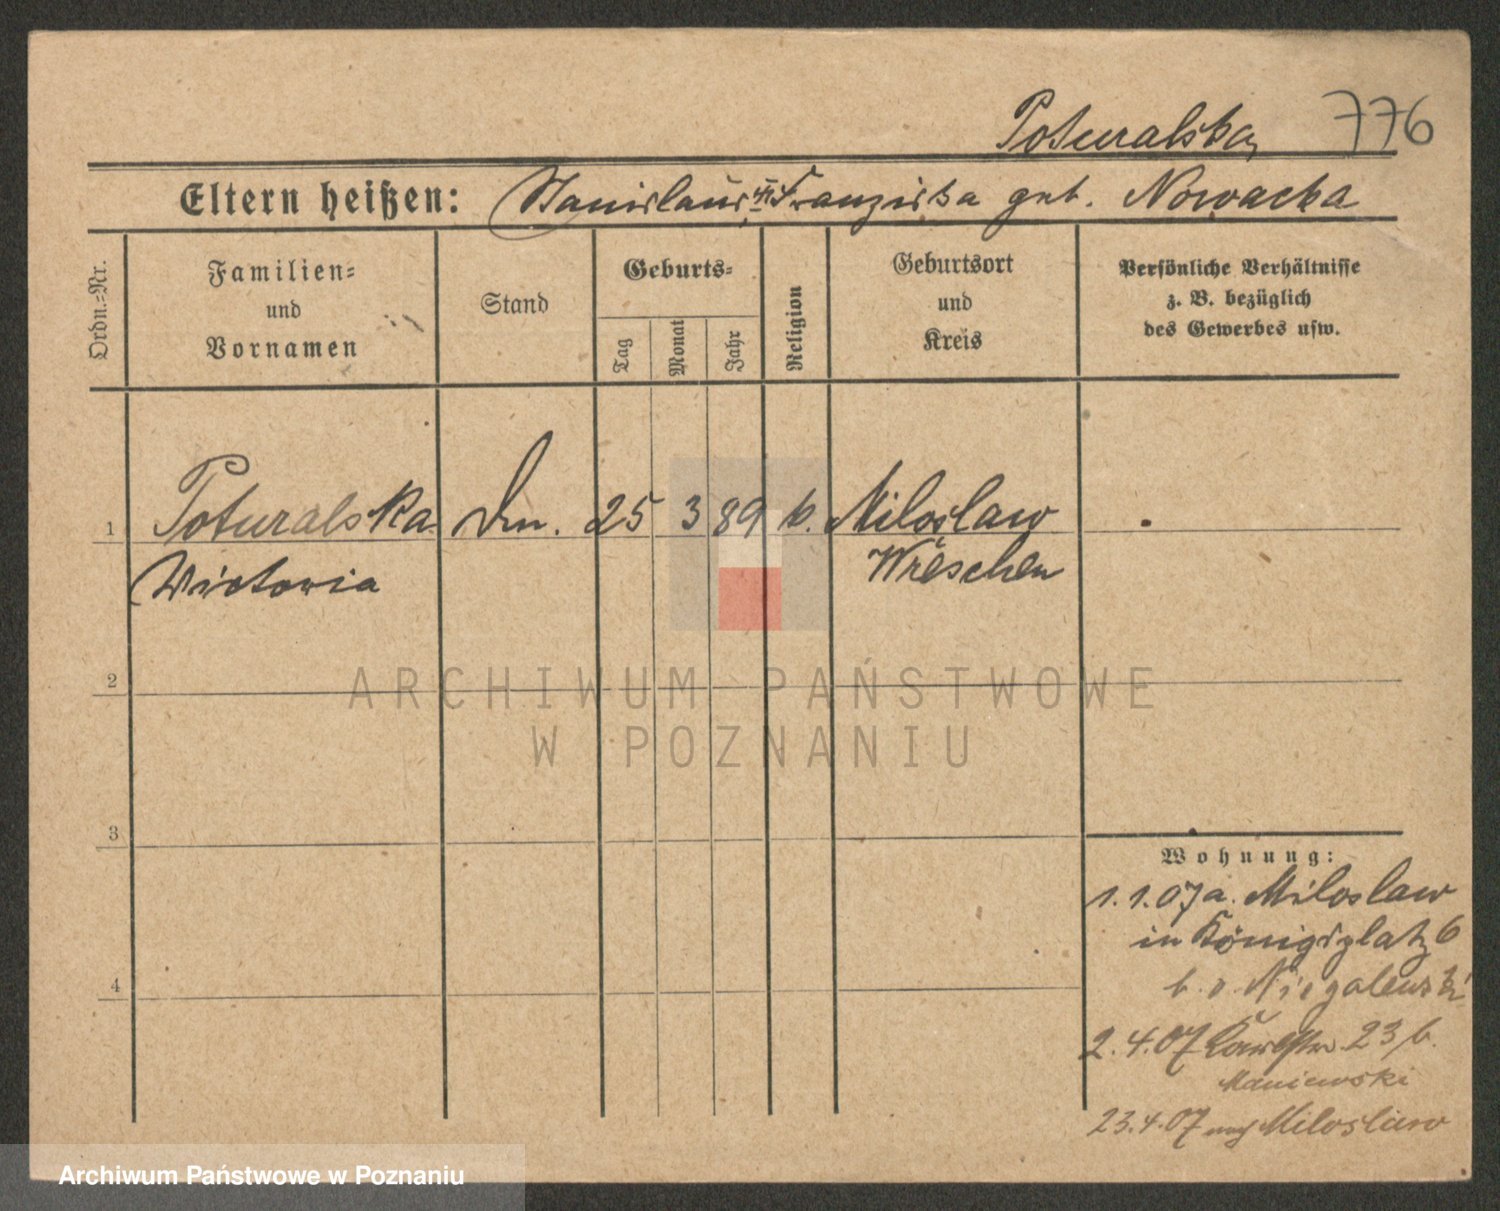 Poturalska 776
Eltern heißen: Stanislaus u Franziska geb. Nowacka
Ordn.=Nr.
Familien=
und
Vornamen
Stand
Geburts=
Tag
Monat
Jahr
Religion
Geburtsort
und
Kreis
Persönliche Verhältnisse
z. B. bezüglich
des Gewerbes usw.
1 Poturalska 25 3 89 k. Miloslaw
Victoria Wreschen
2
ARCHIWUM PAŃSTWOWE
W POZNANIU
3
Wohnung:
1.1.07 a. Miloslaw
in Königsplatz 6
b. v. Niegolewski
4
2.4.07 23 b.
Maniewski
23.4.07 Miloslaw
Archiwum Państwowe w Poznaniu